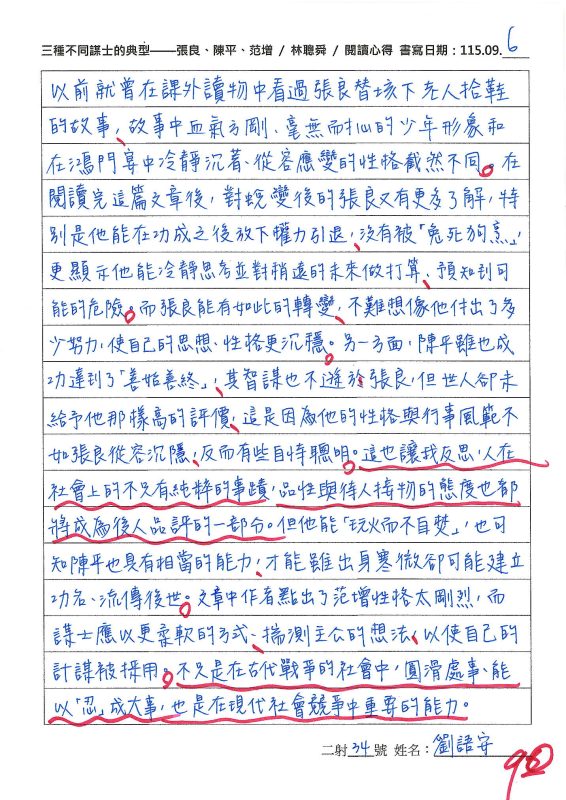 三種不同謀士的典型——張良、陳平、范增 / 林聰舜 / 閱讀心得 書寫日期：115.09. 6
以前就曾在課外讀物中看過張良替垓下老人拾鞋
的故事，故事中血氣方剛、毫無耐心的少年形象和
在鴻門宴中冷靜沉著、從容應變的性格截然不同。在
閱讀完這篇文章後，對蛻變後的張良又有更多了解，特
別是他能在功成之後放下權力引退，沒有被「兔死狗烹」，
更顯示他能冷靜思考並對稍遠的未來做打算、預知到可
能的危險。而張良能有如此的轉變，不難想像他付出了多
少努力，使自己的思想、性格更沉穩。另一方面，陳平雖也成
功達到了「善始善終」，其智謀也不遜於張良，但世人卻未
給予他那樣高的評價，這是因為他的性格與行事風範不
如張良從容沉隱，反而有些自恃聰明。這也讓我反思，人在
社會上的不只有純粹的事蹟，品性與待人接物的態度也都
將成為後人品評的一部分。但他能「玩火而不自焚」，也可
知陳平也具有相當的能力，才能雖出身寒微卻可能建立
功名、流傳後世。文章中作者點出了范增性格太剛烈，而
謀士應以更柔軟的方式、揣測主公的想法，以使自己的
計謀被採用。不只是在古代戰爭的社會中，圓滑處事、能
以「忍」成大事，也是在現代社會競爭中重要的能力。
二射 34 號 姓名：劉語安